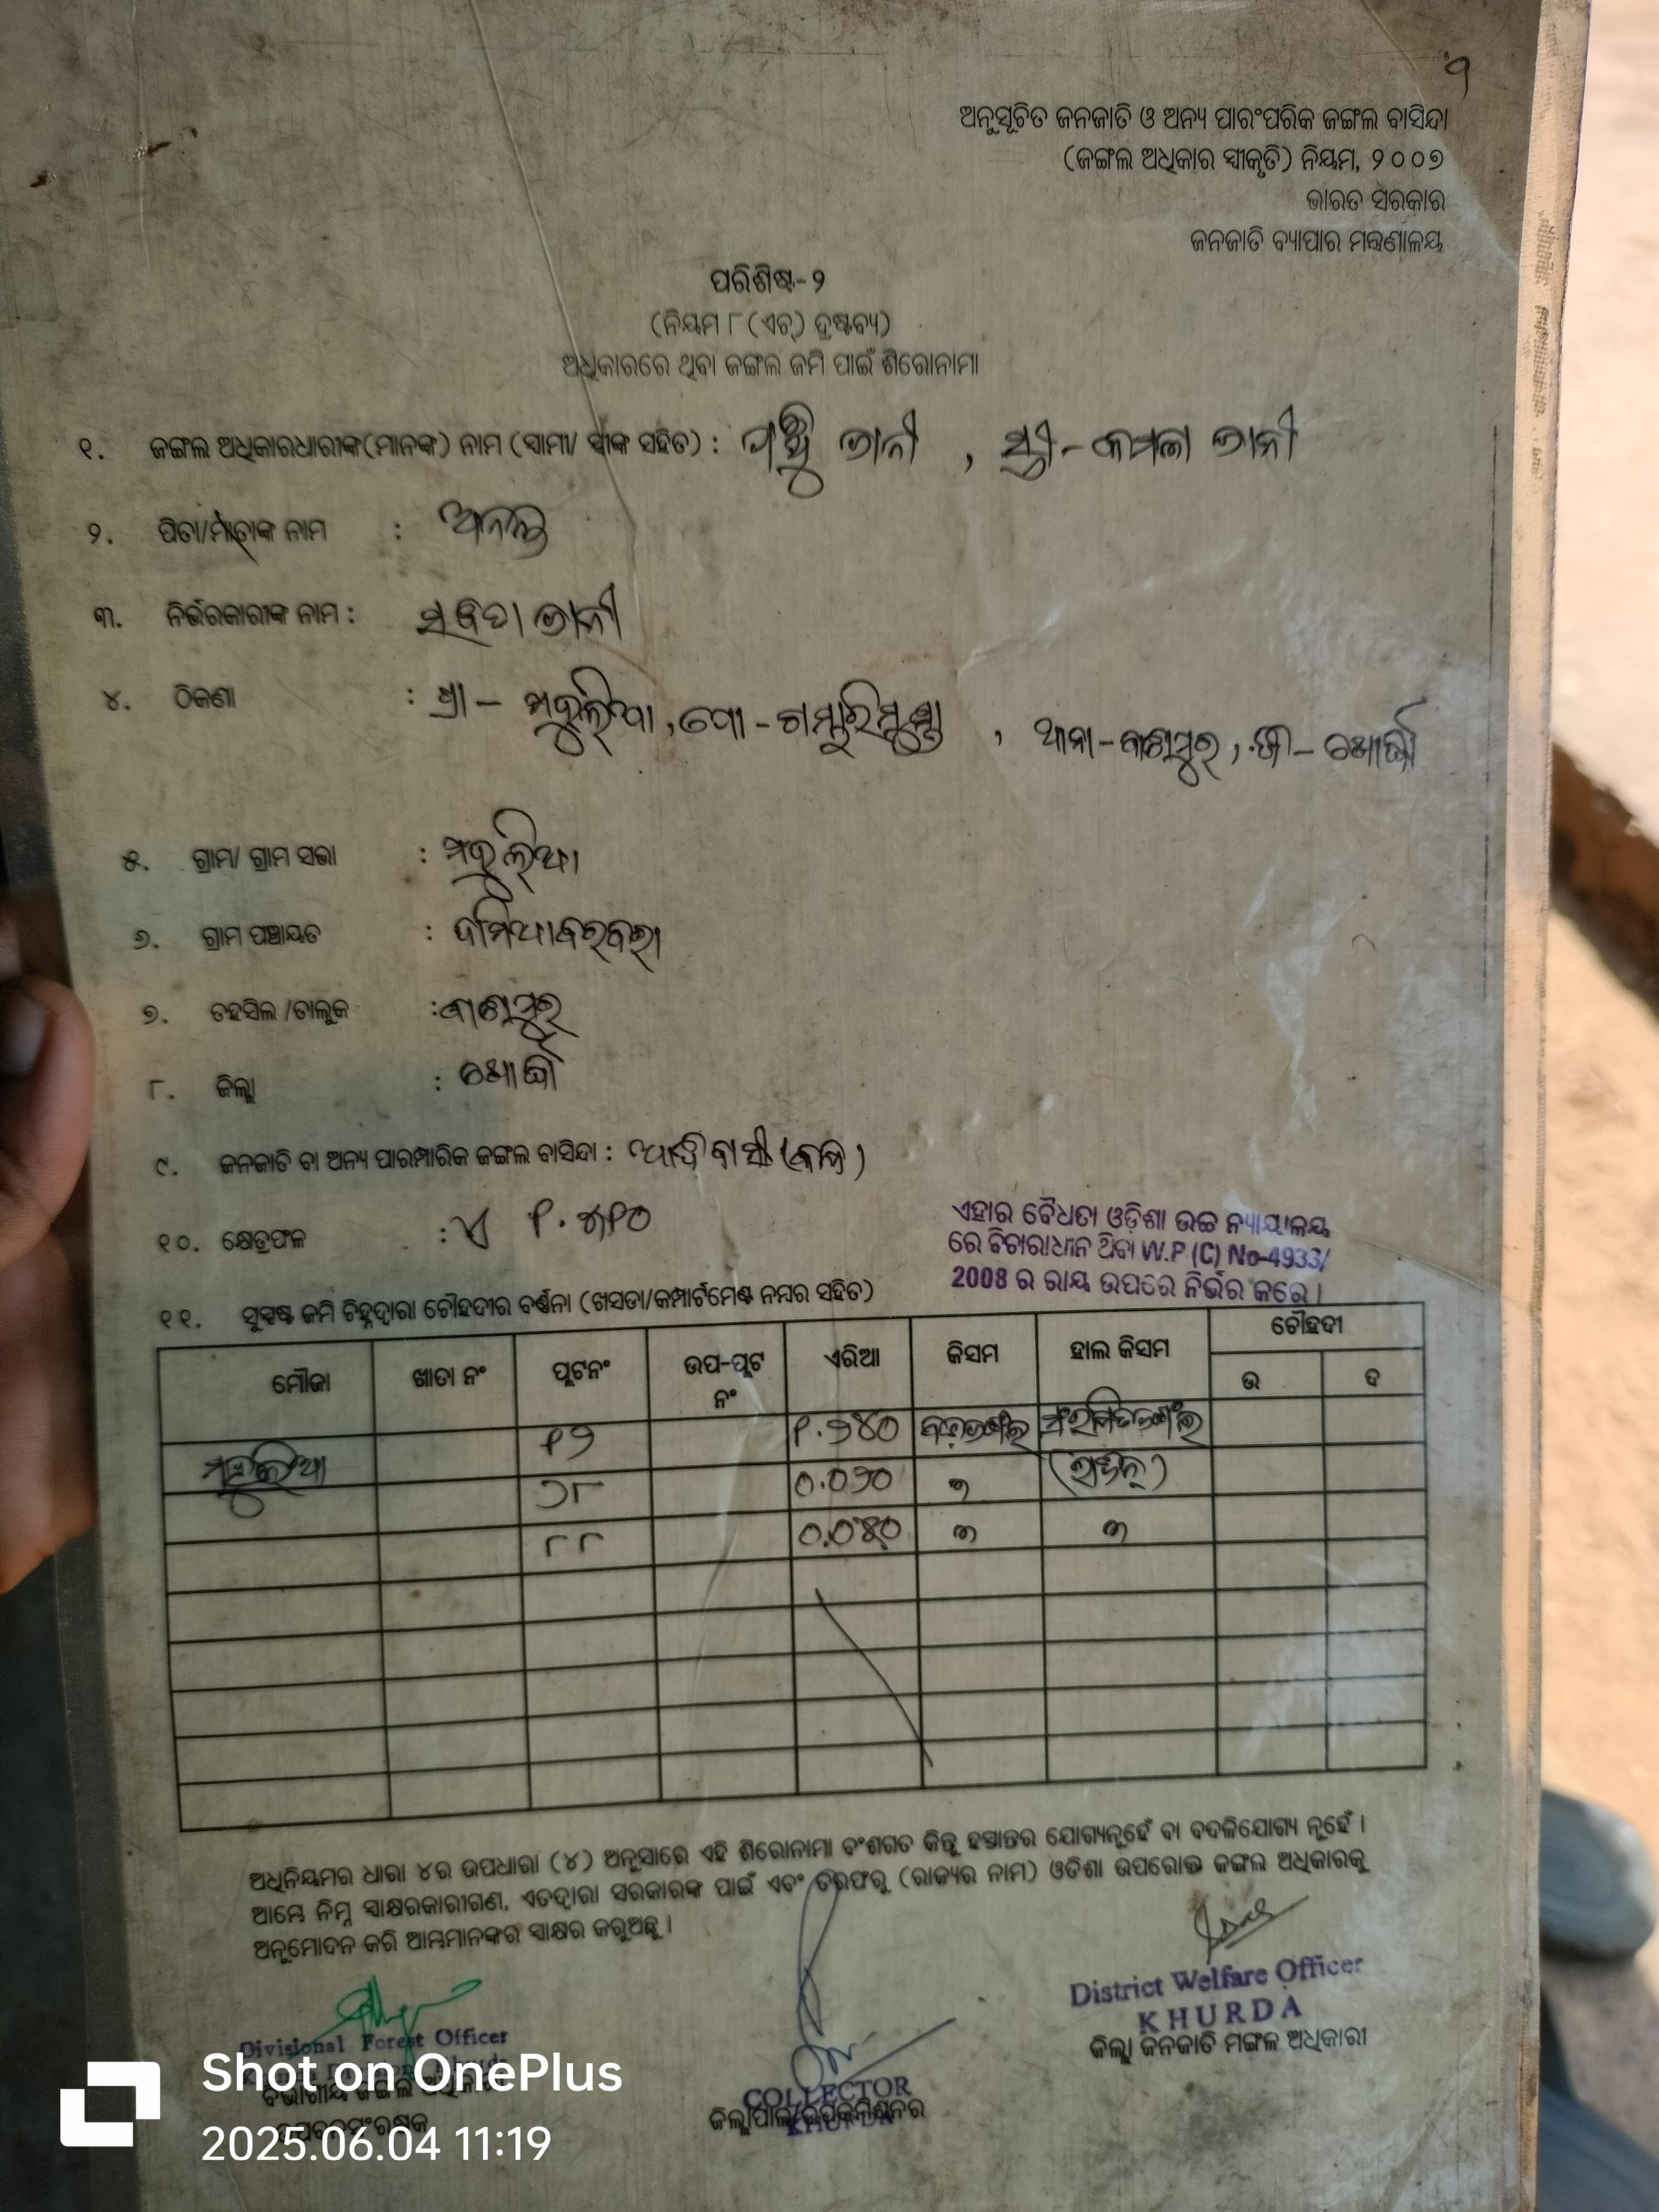 ୨
ଅନୁସୂଚିତ ଜନଜାତି ଓ ଅନ୍ୟ ପାରଂପରିକ ଜଙ୍ଗଲ ବାସିନ୍ଦା
(ଜଙ୍ଗଲ ଅଧିକାର ସ୍ବୀକୃତି) ନିୟମ, ୨୦୦୭
ଭାରତ ସରକାର
ଜନଜାତି ବ୍ୟାପାର ମନ୍ତ୍ରଣାଳୟ
ପରିଶିଷ୍ଟ-୨
(ନିୟମ ୮(ଏଚ୍) ଦ୍ରଷ୍ଟବ୍ୟ)
ଅଧିକାରରେ ଥିବା ଜଙ୍ଗଲ ଜମି ପାଇଁ ଶିରୋନାମା
୧. ଜଙ୍ଗଲ ଅଧିକାରଧାରୀଙ୍କ(ମାନଙ୍କ) ନାମ (ସ୍ବାମୀ/ ସ୍ତ୍ରୀଙ୍କ ସହିତ) : ଜାନୀ , ସ୍ତ୍ରୀ-କମଳା ଜାନୀ
୨. ପିତା/ମାତାଙ୍କ ନାମ : ଅନନ୍ତ
୩. ନିର୍ଭରକାରୀଙ୍କ ନାମ : ସବିତା ଜାନୀ
୪. ଠିକଣା : ଗ୍ରା- ମହୁଲିଆ, ପୋ-ଗମ୍ଭାରିମୁଣ୍ଡା , ଥାନା-ବାଣପୁର, ଜି-ଖୋର୍ଦ୍ଧା
୫. ଗ୍ରାମ/ ଗ୍ରାମ ସଭା : ମହୁଲିଆ
୬. ଗ୍ରାମ ପଞ୍ଚାୟତ : ଦାମିଆବରବରା
୭. ତହସିଲ /ତାଲୁକ : ବାଣପୁର
୮. ଜିଲ୍ଲା : ଖୋର୍ଦ୍ଧା
୯. ଜନଜାତି ବା ଅନ୍ୟ ପାରମ୍ପାରିକ ଜଙ୍ଗଲ ବାସିନ୍ଦା : ଆଦିବାସୀ
୧୦. କ୍ଷେତ୍ରଫଳ : ଏ
ଏହାର ବୈଧତା ଓଡ଼ିଶା ଉଚ୍ଚ ନ୍ୟାୟାଳୟ
ରେ ବିଚାରାଧୀନ ଥିବା W.P.(C) No-4933/
2008 ର ରାୟ ଉପରେ ନିର୍ଭର କରେ ।
୧୧. ସୁସ୍ପଷ୍ଟ ଜମି ଚିହ୍ନଦ୍ୱାରା ଚୌହଦୀର ବର୍ଣ୍ଣନା (ଖସଡା/କମ୍ପାର୍ଟମେଣ୍ଟ ନମ୍ବର ସହିତ)
ମୌଜା ଖାତା ନଂ ପ୍ଲଟନଂ ଉପ-ପ୍ଲଟ ନଂ ଏରିଆ କିସମ ହାଲ କିସମ ଚୌହଦୀ
ଉ ଦ
ମହୁଲିଆ ୧୨ ୧.୨୪୦
୨୮ ୦.୦୨୦
୮୮ ୦.୦୫୦
ଅଧିନିୟମର ଧାରା ୪ର ଉପଧାରା (୪) ଅନୁସାରେ ଏହି ଶିରୋନାମା ବଂଶଗତ କିନ୍ତୁ ହସ୍ତାନ୍ତର ଯୋଗ୍ୟନୁହେଁ ବା ବଦଳିଯୋଗ୍ୟ ନୁହେଁ ।
ଆମ୍ଭେ ନିମ୍ନ ସ୍ୱାକ୍ଷରକାରୀଗଣ, ଏତଦ୍ୱାରା ସରକାରଙ୍କ ପାଇଁ ଏବଂ ତରଫରୁ (ରାଜ୍ୟର ନାମ) ଓଡିଶା ଉପରୋକ୍ତ ଜଙ୍ଗଲ ଅଧିକାରକୁ
ଅନୁମୋଦନ କରି ଆମ୍ଭମାନଙ୍କର ସ୍ୱାକ୍ଷର କରୁଅଛୁ ।
District Welfare Officer
KHURDA
ଜିଲ୍ଲା ଜନଜାତି ମଙ୍ଗଳ ଅଧିକାରୀ
Divisional Forest Officer
ବିଭାଗୀୟ ଜଙ୍ଗଲ
COLLECTOR
KHURDA
Shot on OnePlus
2025.06.04 11:19